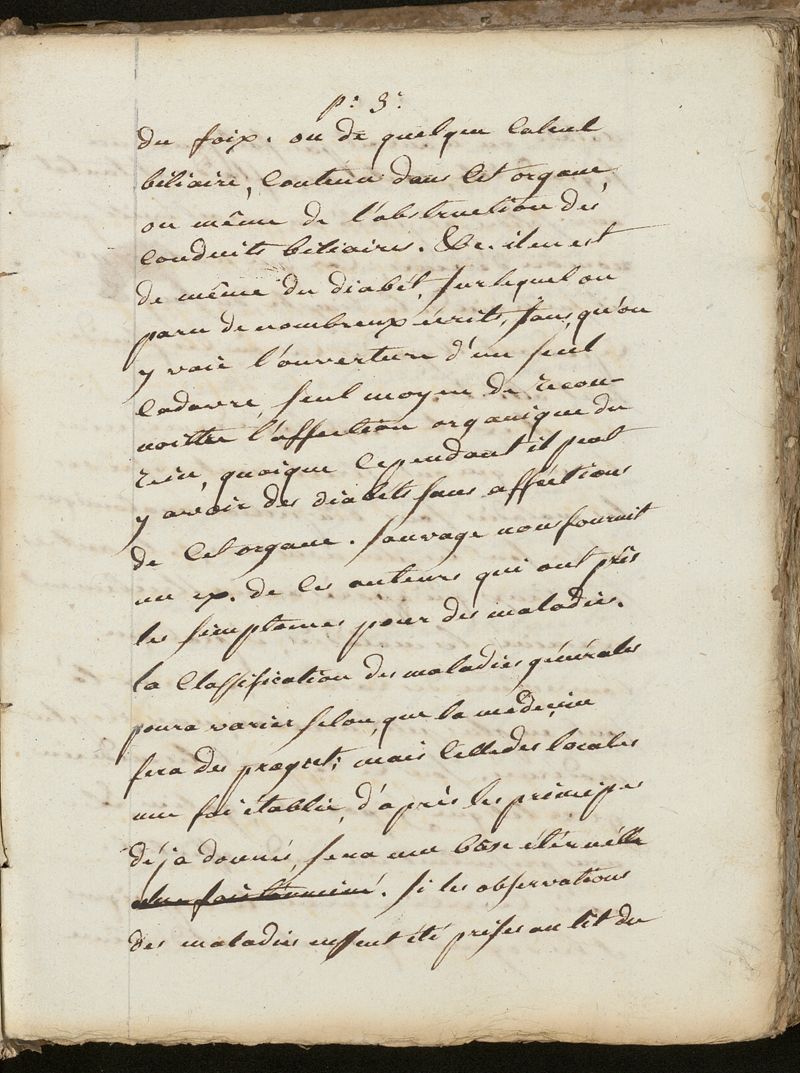 p: 3.
du foix. ou de quelque calcul
biliaire, contenu dans cet organe,
ou même de l'obstruction des
conduits biliaires. &c. il en est
de même du diabét, sur lequel on
paru de nombreux écrits, sans qu'on
y voie l'ouverture d'un seul
cadavre, seul moyen de recon-
noitre l'affection organique du
rein, quoique cependant il peut
y avoir des diabéts sans affections
de cet organe. sauvage nous fournit
un ex. de ces auteurs qui ont près
les simptomes pour des maladies.
la classification des maladies générales
poura varier selon, que la médecine
fera des progrèt; mais celle des locales
une foi établie, d'après les principes
déja donnés, sera une base éternélle
. si les observations
des maladies eussent été prises au lit du